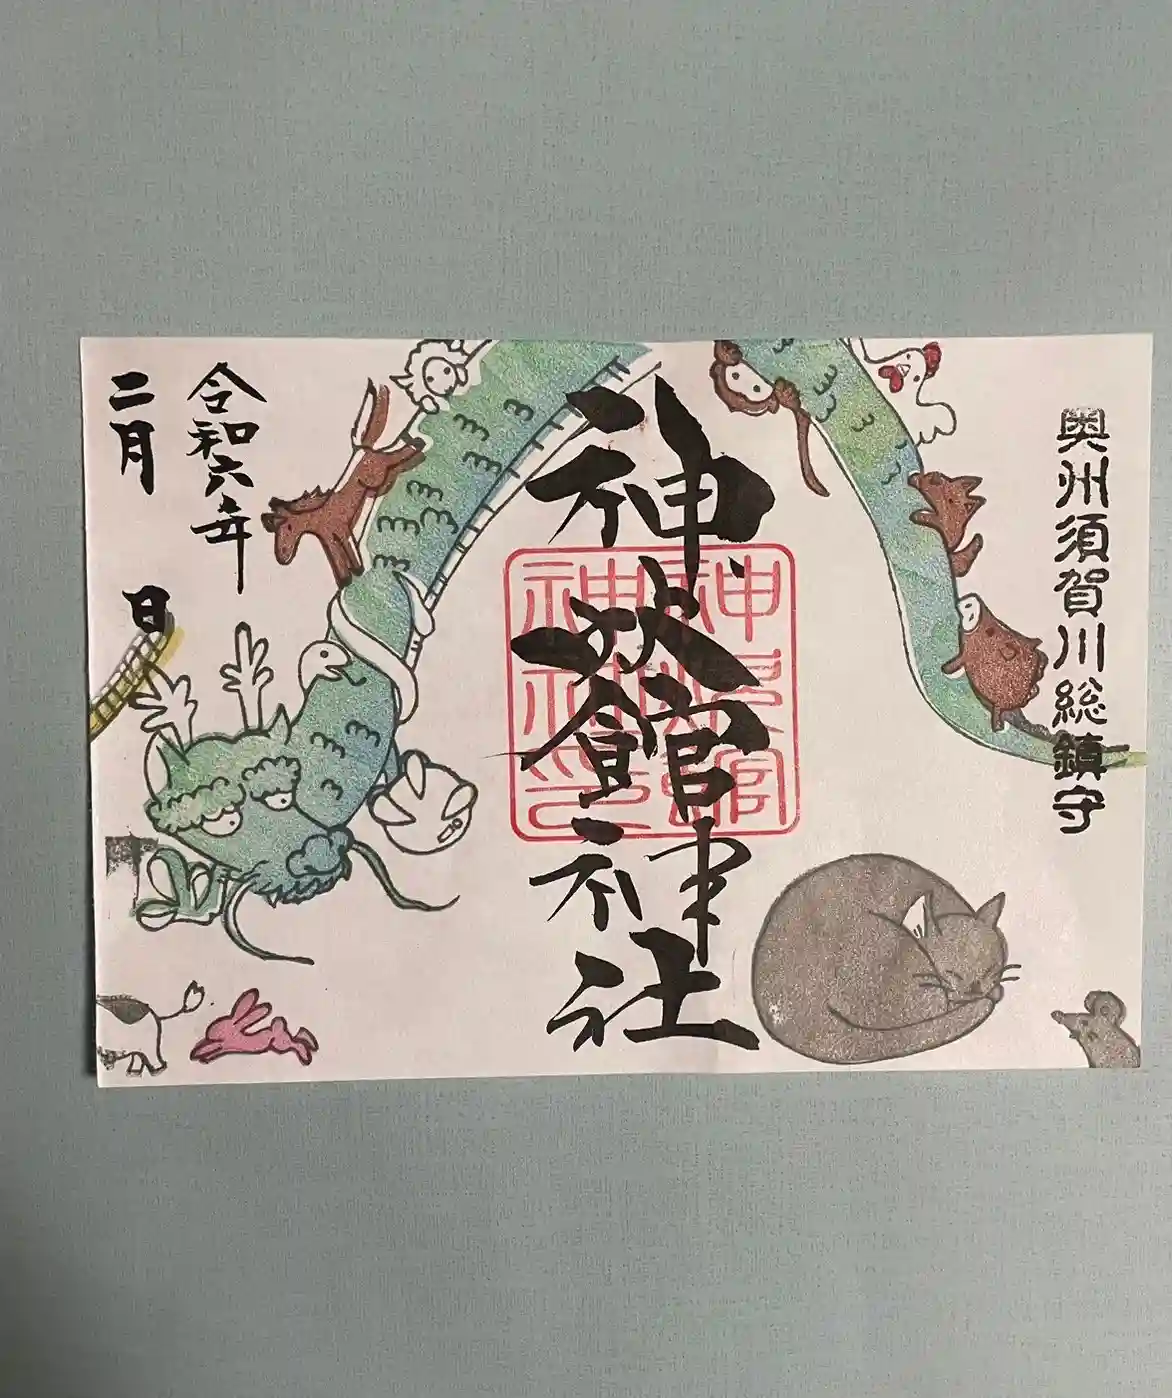 奥州須賀川総鎮守
神炊館神社
神炊館
神社印
令和六年
二月 日